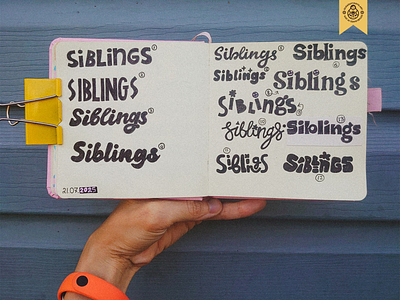 SiBLiNGS
SIBLINGS
Siblings
Siblings
21.07.2025
Siblings
Siblings
Siblings
Siblings
Siblings
Siblings
Siblings
Siblings
Siblings